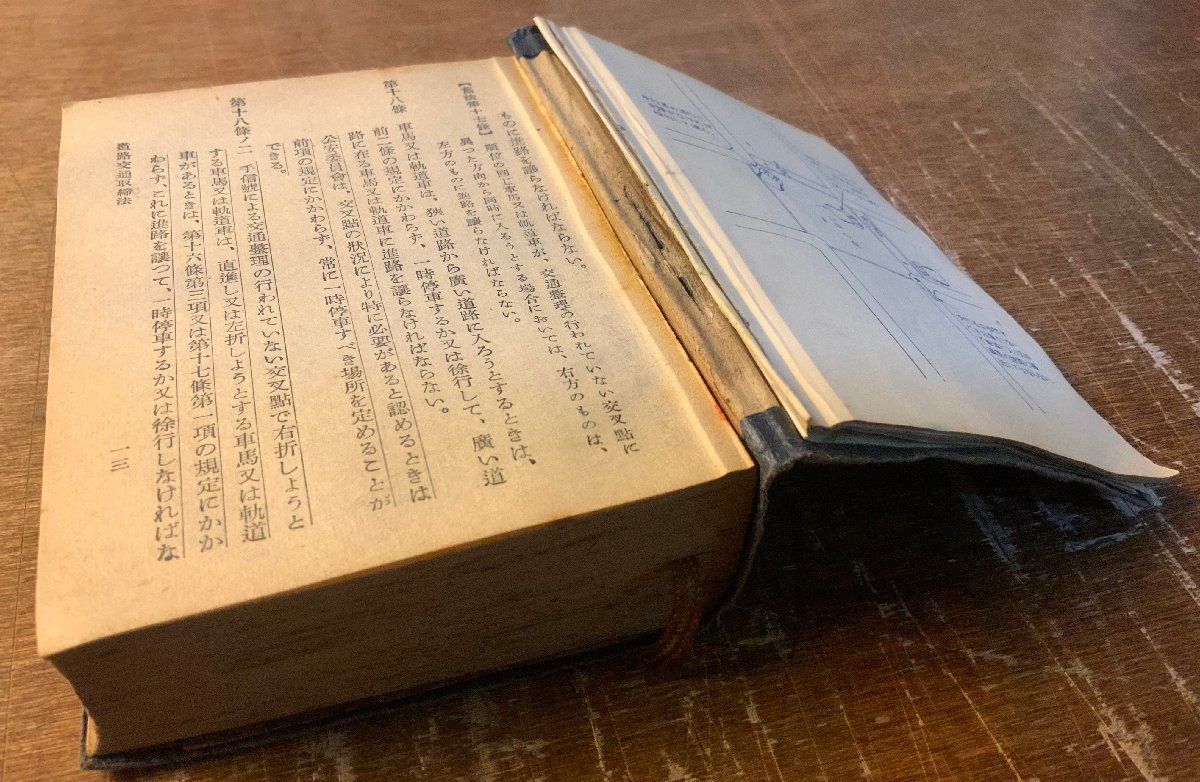 ものに進路を讓らなければならない。
【舊法第十七條】 順位の同じ車馬又は軌道車が、交通整理の行われていない交叉點に
異つた方向から同時に入ろうとする場合においては、右方のものは、
左方のものに進路を讓らなければならない。
第十八條 車馬又は軌道車は、狹い道路から廣い道路に入ろうとするときは、
前二條の規定にかかわらず、一時停車するか又は徐行して、廣い道
路に在る車馬又は軌道車に進路を讓らなければならない。
公安委員會は、交叉點の狀況により特に必要があると認めるときは
前項の規定にかかわらず、常に一時停車すべき場所を定めることが
できる。
第十八條ノ二 信號による交通整理の行われていない交叉點で右折しようと
する車馬又は軌道車は、直進し又は左折しようとする車馬又は軌道
車があるときは、第十六條第三項又は第十七條第一項の規定にかか
わらず、これに進路を讓つて、一時停車するか又は徐行しなければな
道路交通取締法
一三